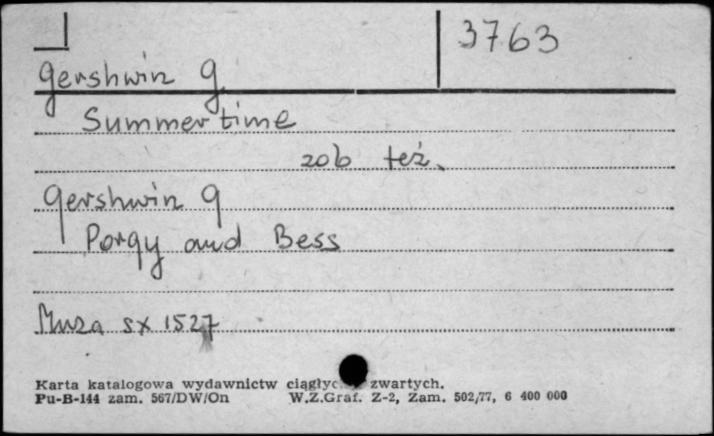 3763
Gershwin G
Summertime
zob też.
Gershwin G
Porgy and Bess
Muza sx 1527
Karta katalogowa wydawnictw zwartych.
Pu-B-144 zam. 567/DW/On W.Z.Graf. Z-2, Zam. 502/77, 6 400 000